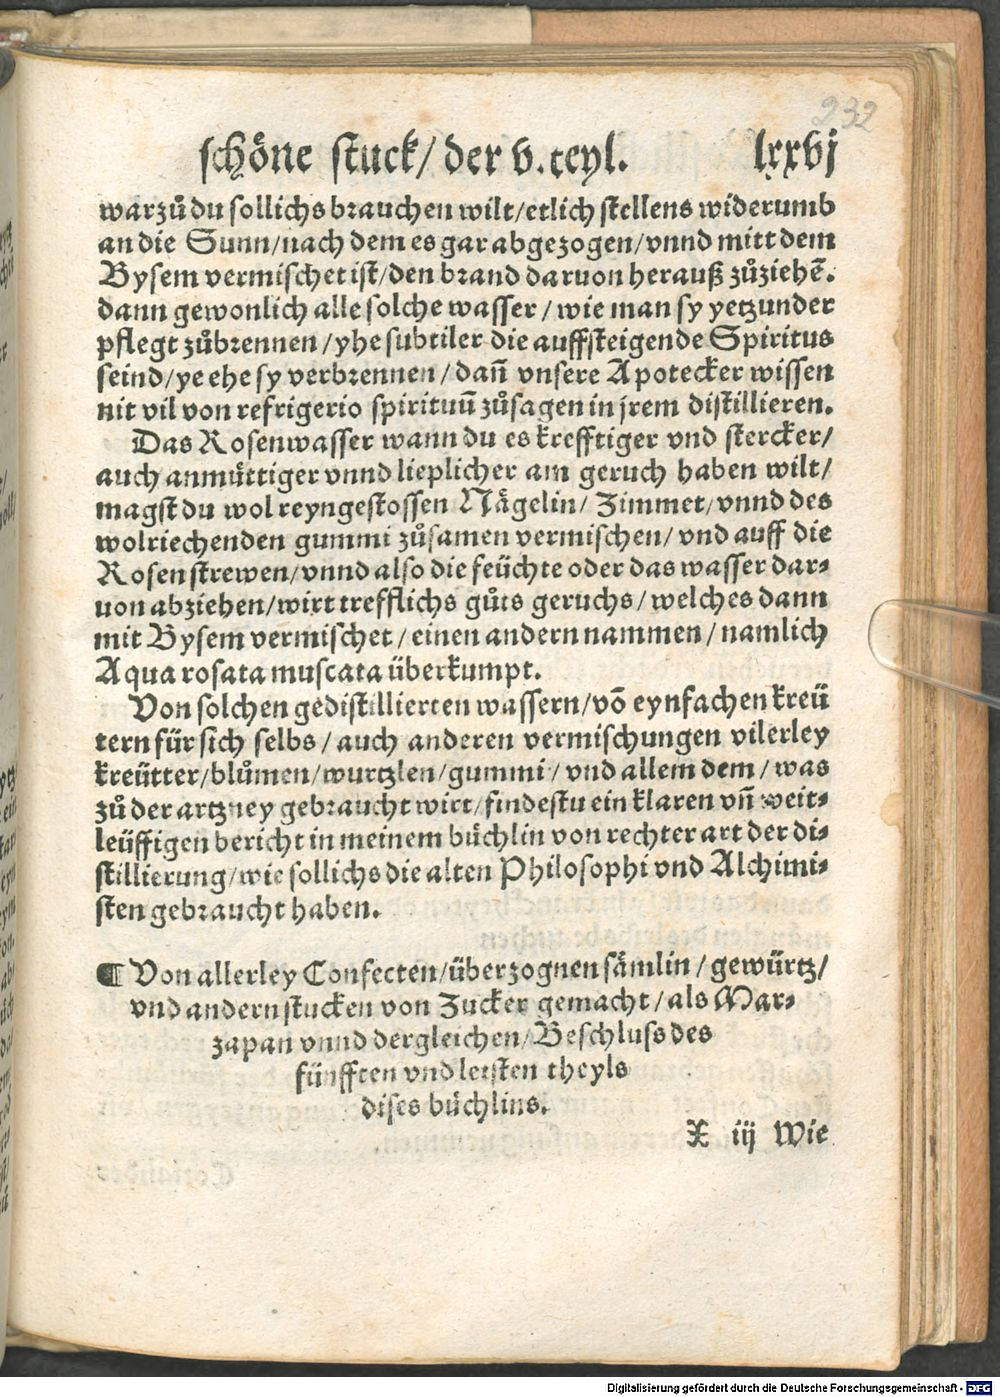 232
schöne stuck/ der v. teyl. lxxvj
warzů du sollichs brauchen wilt/etlich stellens widerumb
an die Sunn/nach dem es gar abgezogen/vnnd mitt dem
Bysem vermischet ist/den brand daruon herauß zůziehē.
dann gewonlich alle solche wasser/wie man sy yetzunder
pflegt zůbrennen/yhe subtiler die auffsteigende Spiritus
seind/ye ehe sy verbrennen/dañ vnsere Apotecker wissen
nit vil von refrigerio spirituū zůsagen in jrem distillieren.
Das Rosenwasser wann du es krefftiger vnd stercker/
auch anmüttiger vnnd lieplicher am geruch haben wilt/
magst du wol reyngestossen Nägelin/Zimmet/vnnd des
wolriechenden gummi zůsamen vermischen/vnd auff die
Rosen strewen/vnnd also die feüchte oder das wasser dar⸗
uon abziehen/wirt trefflichs gůts geruchs/welches dann
mit Bysem vermischet/einen andern nammen/namlich
Aqua rosata muscata überkumpt.
Von solchen gedistillierten wassern/vō eynfachen kreü
tern für sich selbs/auch anderen vermischungen vilerley
kreütter/blůmen/wurtzlen/gummi/vnd allem dem/was
zů der artzney gebraucht wirt/findestu ein klaren vñ weit⸗
leüffigen bericht in meinem büchlin von rechter art der di⸗
stillierung/wie sollichs die alten Philosophi vnd Alchimi⸗
sten gebraucht haben.
¶ Von allerley Confecten/überzognen sämlin/gewürtz/
vnd andern stucken von Zucker gemacht/als Mar⸗
zapan vnnd dergleichen/Beschluss des
fünfften vnd letsten theyls
dises büchlins.
X iij Wie
Digitalisierung gefördert durch die Deutsche Forschungsgemeinschaft - DFG